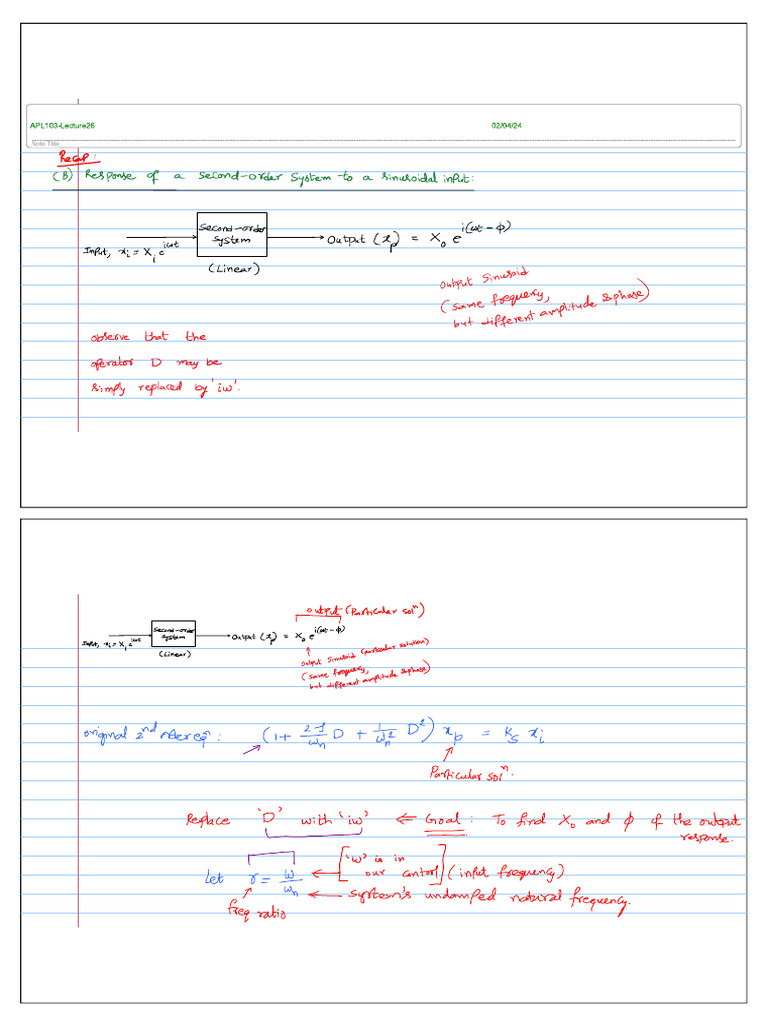 APL103-Lecture26 02/04/24
Note Title
Recap:
(B) Response of a second-order system to a sinusoidal input:
Input, x_i = X_i e^{iωt}
Second-order
system
(Linear)
Output (x_p) = X_o e^{i(ωt-φ)}
Output Sinusoid
(same frequency,
but different amplitude & phase)
observe that the
operator D may be
simply replaced by 'iω'.
output (Particular solⁿ)
Input, x_i = X_i e^{iωt}
Second-order
system
(Linear)
Output (x_p) = X_o e^{i(ωt-φ)}
Output Sinusoid (particular solution)
(same frequency,
but different amplitude & phase)
original 2nd order eqⁿ: (1 + 2ζ/ω_n D + 1/ω_n² D²) x_p = K_s x_i
Particular solⁿ.
Replace 'D' with 'iω' ← Goal: To find X_o and φ of the output
response.
Let r = ω/ω_n
['ω' is in
our control] (input frequency)
← system's undamped natural frequency.
freq ratio